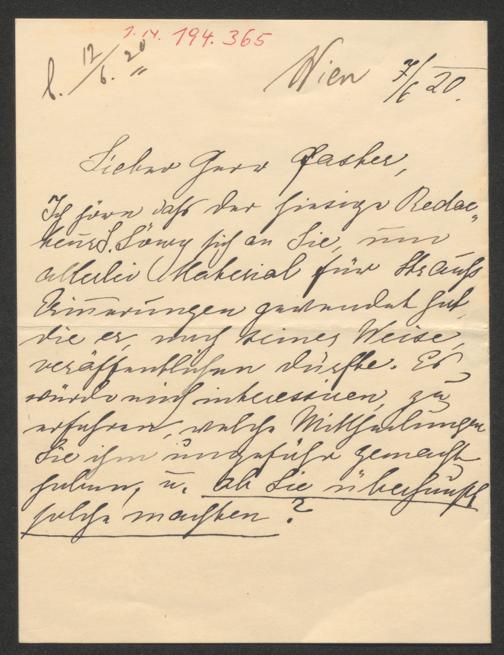 I.N. 194.365
b. 12/6. 20 "
Wien 7/6 20.
Lieber Herr Paster,
Ich höre daß der hiesige Redac-
teur S. Löwy sich an Sie, um
allerlei Material für Strauß
Erinnerungen gewendet hat,
die er, nach seiner Weise,
veröffentlichen dürfte. Es
würde mich interessiren, zu
erfahren, welche Mittheilungen
Sie ihm ungefähr gemacht
haben, u. ob Sie überhaupt
solche machten?